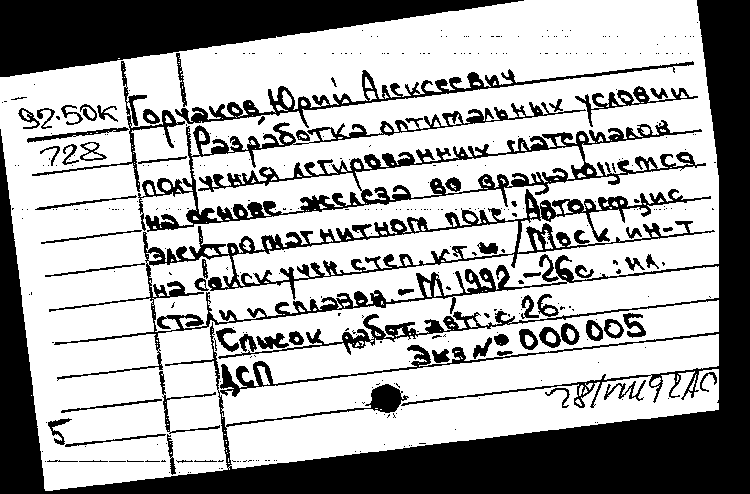 92-50к Горчаков Юрий Алексеевич
728 Разработка оптимальных условий
получения легированных материалов
на основе железа во вращающемся
электромагнитном поле: Автореф. дис
на соиск. учен. степ. к.т.н. / Моск. ин-т
стали и сплавов. - М. 1992. - 26с. : ил.
Список работ авт.: с 26.
ДСП Экз № 000005
28/VIII 92 АС
5